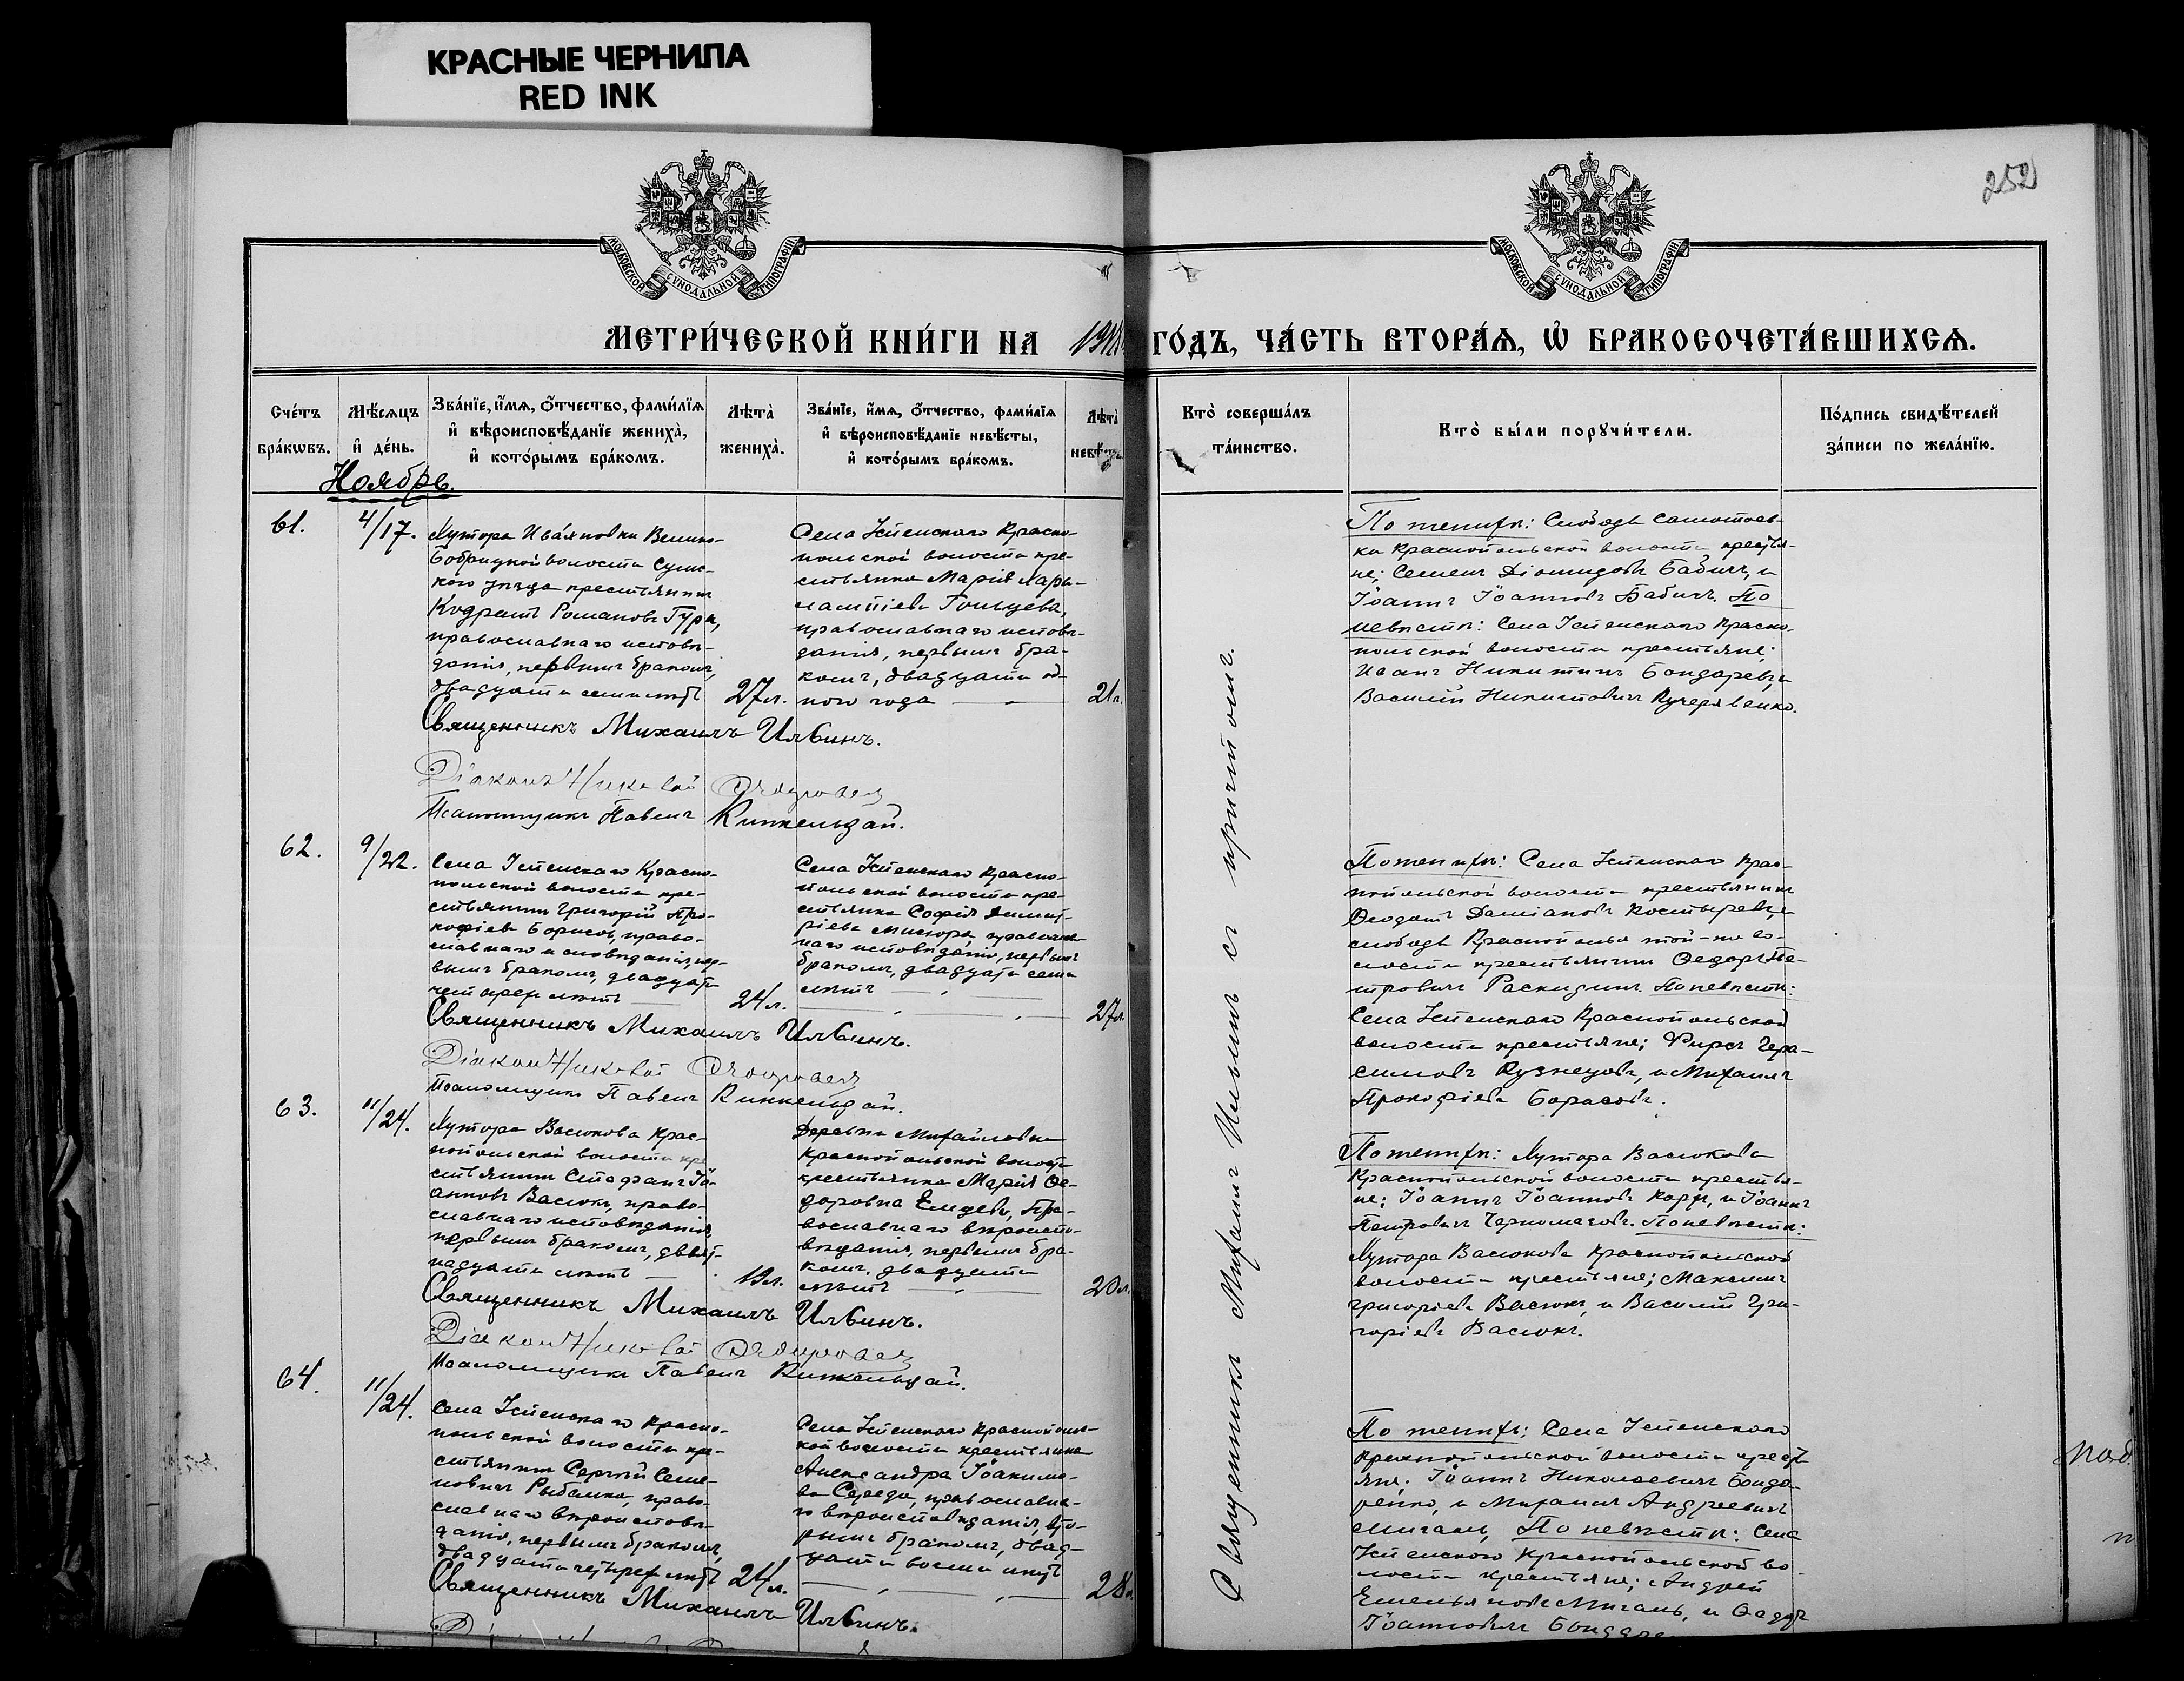 КРАСНЫЕ ЧЕРНИЛА
RED INK
252
МОСКОВСКОЙ СѴНОДАЛЬНОЙ ТИПОГРАФІИ
МОСКОВСКОЙ СѴНОДАЛЬНОЙ ТИПОГРАФІИ
МЕТРИ́ЧЕСКОЙ КНИ́ГИ НА 1918 ГО́ДЪ, ЧА́СТЬ ВТОРА́Ѧ, Ѡ҆ БРАКОСОЧЕТА́ВШИХСѦ.
Сче́тъ бра́кѡвъ.
Мѣ́сѧцъ и҆ де́нь.
Зва́нїе, и҆́мѧ, ѻ҆́тчество, фами́лїѧ и҆ вѣроисповѣ́данїе жениха̀, и҆ кото́рымъ бра́комъ.
Лѣта̀ жениха̀.
Зва́нїе, и҆́мѧ, ѻ҆́тчество, фами́лїѧ и҆ вѣроисповѣ́данїе невѣ́сты, и҆ кото́рымъ бра́комъ.
Лѣта̀ невѣ́сты
Кто̀ соверша́лъ та́инство.
Кто̀ бы́ли порꙋчи́тели.
По́дпись свидѣ́телей за́писи по жела́нїю.
Ноябрь.
61.
4/17.
Хутора Ивановки Велико-
Бобрицкой волости Сумс-
кого уѣзда крестьянинъ
Кодратъ Романовъ Гура,
православнаго исповѣ-
данія, первымъ бракомъ,
двадцати семи лѣтъ
27 л.
Села Успенскаго Красно-
польской волости кре-
стьянка Марія Хара-
лампіева Гольцева,
православнаго исповѣ-
данія, первымъ бра-
комъ, двадцати од-
ного года
21 л.
По женихѣ: Слободы Самотоев-
ки Краснопольской волости крестья-
не; Семенъ Діомидовъ Бабичъ, и
Іоаннъ Іоанновъ Бабичъ. По
невѣстѣ: Села Успенскаго Красно-
польской волости крестьяне;
Иванъ Никитинъ Бондаревъ, и
Василій Никитовичъ Кучерявенко.
Священникъ Михаилъ Ильинъ.
Діаконъ Николай
Псаломщикъ Павелъ
62.
9/22.
Села Успенскаго Красно-
польской волости кре-
стьянинъ Григорій Про-
кофіевъ Борисовъ, право-
славнаго исповѣданія, пер-
вымъ бракомъ, двадцати
четырехъ лѣтъ
24 л.
Села Успенскаго Красно-
польской волости кре-
стьянка Софія Димит-
ріева Мисюра, православна-
наго исповѣданія, первымъ
бракомъ, двадцати семи
лѣтъ
27 л.
По женихѣ: Села Успенскаго Крас-
нопольской волости крестьянинъ
Ѳеодотъ Даміановъ Костыревъ, и
слободы Краснополья той-же во-
лости крестьянинъ Ѳедоръ Пе-
тровичъ Раскидинъ. По невѣстѣ:
Села Успенскаго Краснопольской
волости крестьяне; Фирсъ Гера-
симовъ Кузнецовъ, и Михаилъ
Прокофіевъ Борисовъ.
Священникъ Михаилъ Ильинъ.
Діаконъ Николай
Псаломщикъ Павелъ
63.
11/24.
Хутора Васюкова Крас-
нопольской волости кре-
стьянинъ Стефанъ Іо-
анновъ Васюкъ, право-
славнаго исповѣданія,
первымъ бракомъ, девят-
надцати лѣтъ
19 л.
Деревни Михайловки
Краснопольской волости
крестьянка Марія Ѳе-
доровна Емцева, пра-
вославнаго вѣроиспо-
вѣданія, первымъ бра-
комъ, двадцати
лѣтъ
20 л.
По женихѣ: Хутора Васюкова
Краснопольской волости крестья-
не; Іоаннъ Іоанновъ Карпъ, и Іоаннъ
Петровичъ Черномазовъ. По невѣстѣ:
Хутора Васюкова Краснопольской
волости крестьяне; Максимъ
Григоріевъ Васюкъ, и Василій Гри-
горіевъ Васюкъ.
Священникъ Михаилъ Ильинъ.
Діаконъ Николай
Псаломщикъ Павелъ
64.
11/24.
Села Успенскаго Красно-
польской волости кре-
стьянинъ Сергѣй Семе-
новичъ Рыбалка, право-
славнаго вѣроисповѣ-
данія, первымъ бракомъ,
двадцати четырехъ лѣтъ
24 л.
Села Успенскаго Краснопольс-
кой волости крестьянка
Александра Іоакимо-
ва Середа, православна-
го вѣроисповѣданія, вто-
рымъ бракомъ, двад-
цати восьми лѣтъ
28 л.
По женихѣ: Села Успенскаго
Краснопольской волости кресть-
яне; Іоаннъ Николаевичъ Бонда-
ренко, и Михаилъ Андреевичъ
Мигаль, По невѣстѣ: Села
Успенскаго Краснопольской во-
лости крестьяне; Андрей
Емельяновъ Мигаль, и Ѳаддей
Іоанновичъ
Священникъ Михаилъ Ильинъ.
Священникъ Михаилъ Ильинъ съ причтомъ.